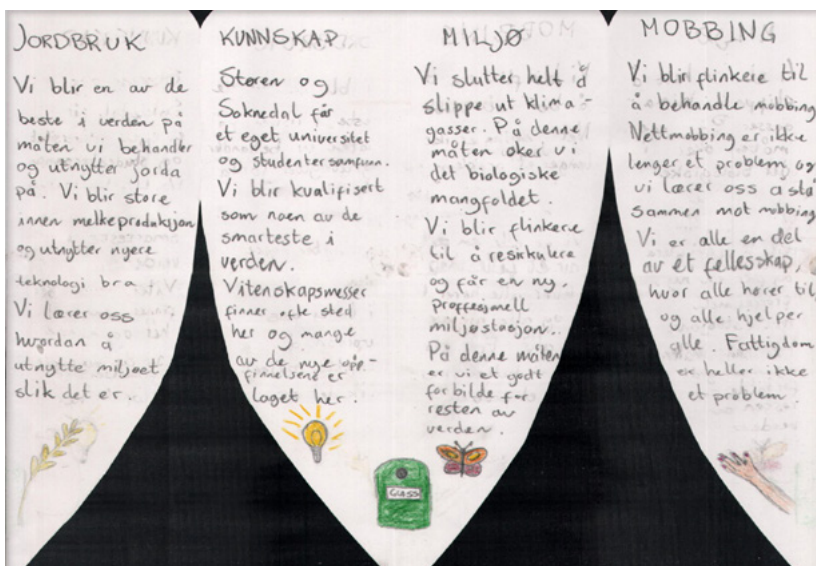 JORDBRUK
Vi blir en av de
beste i verden på
måten vi behandler
og utnytter jorda
på. Vi blir store
innen melkeproduksjon
og utnytter nyere
teknologi bra
Vi lærer oss
hvordan å
utnytte miljøet
slik det er.
KUNNSKAP
Støren og
Soknedal får
et eget universitet
og studentersamfunn.
Vi blir kvalifisert
som noen av de
smarteste i
verden.
Vitenskapsmesser
finner ofte sted
her og mange
av de nye opp-
finnelsene er
laget her.
MILJØ
Vi slutter helt å
slippe ut klima-
gasser. På denne
måten øker vi
det biologiske
mangfoldet.
Vi blir flinkere
til å resirkulere
og får en ny,
proffesjonell
miljøstasjon.
På denne måten
er vi et godt
forbilde for
resten av
verden.
Glass
MOBBING
Vi blir flinkere til
å behandle mobbing
Nettmobbing er ikke
lenger et problem og
vi lærer oss å stå
sammen mot mobbing
Vi er alle en del
av et fellesskap,
hvor alle hører til
og alle hjelper
alle. Fattigdom
er heller ikke
et problem.